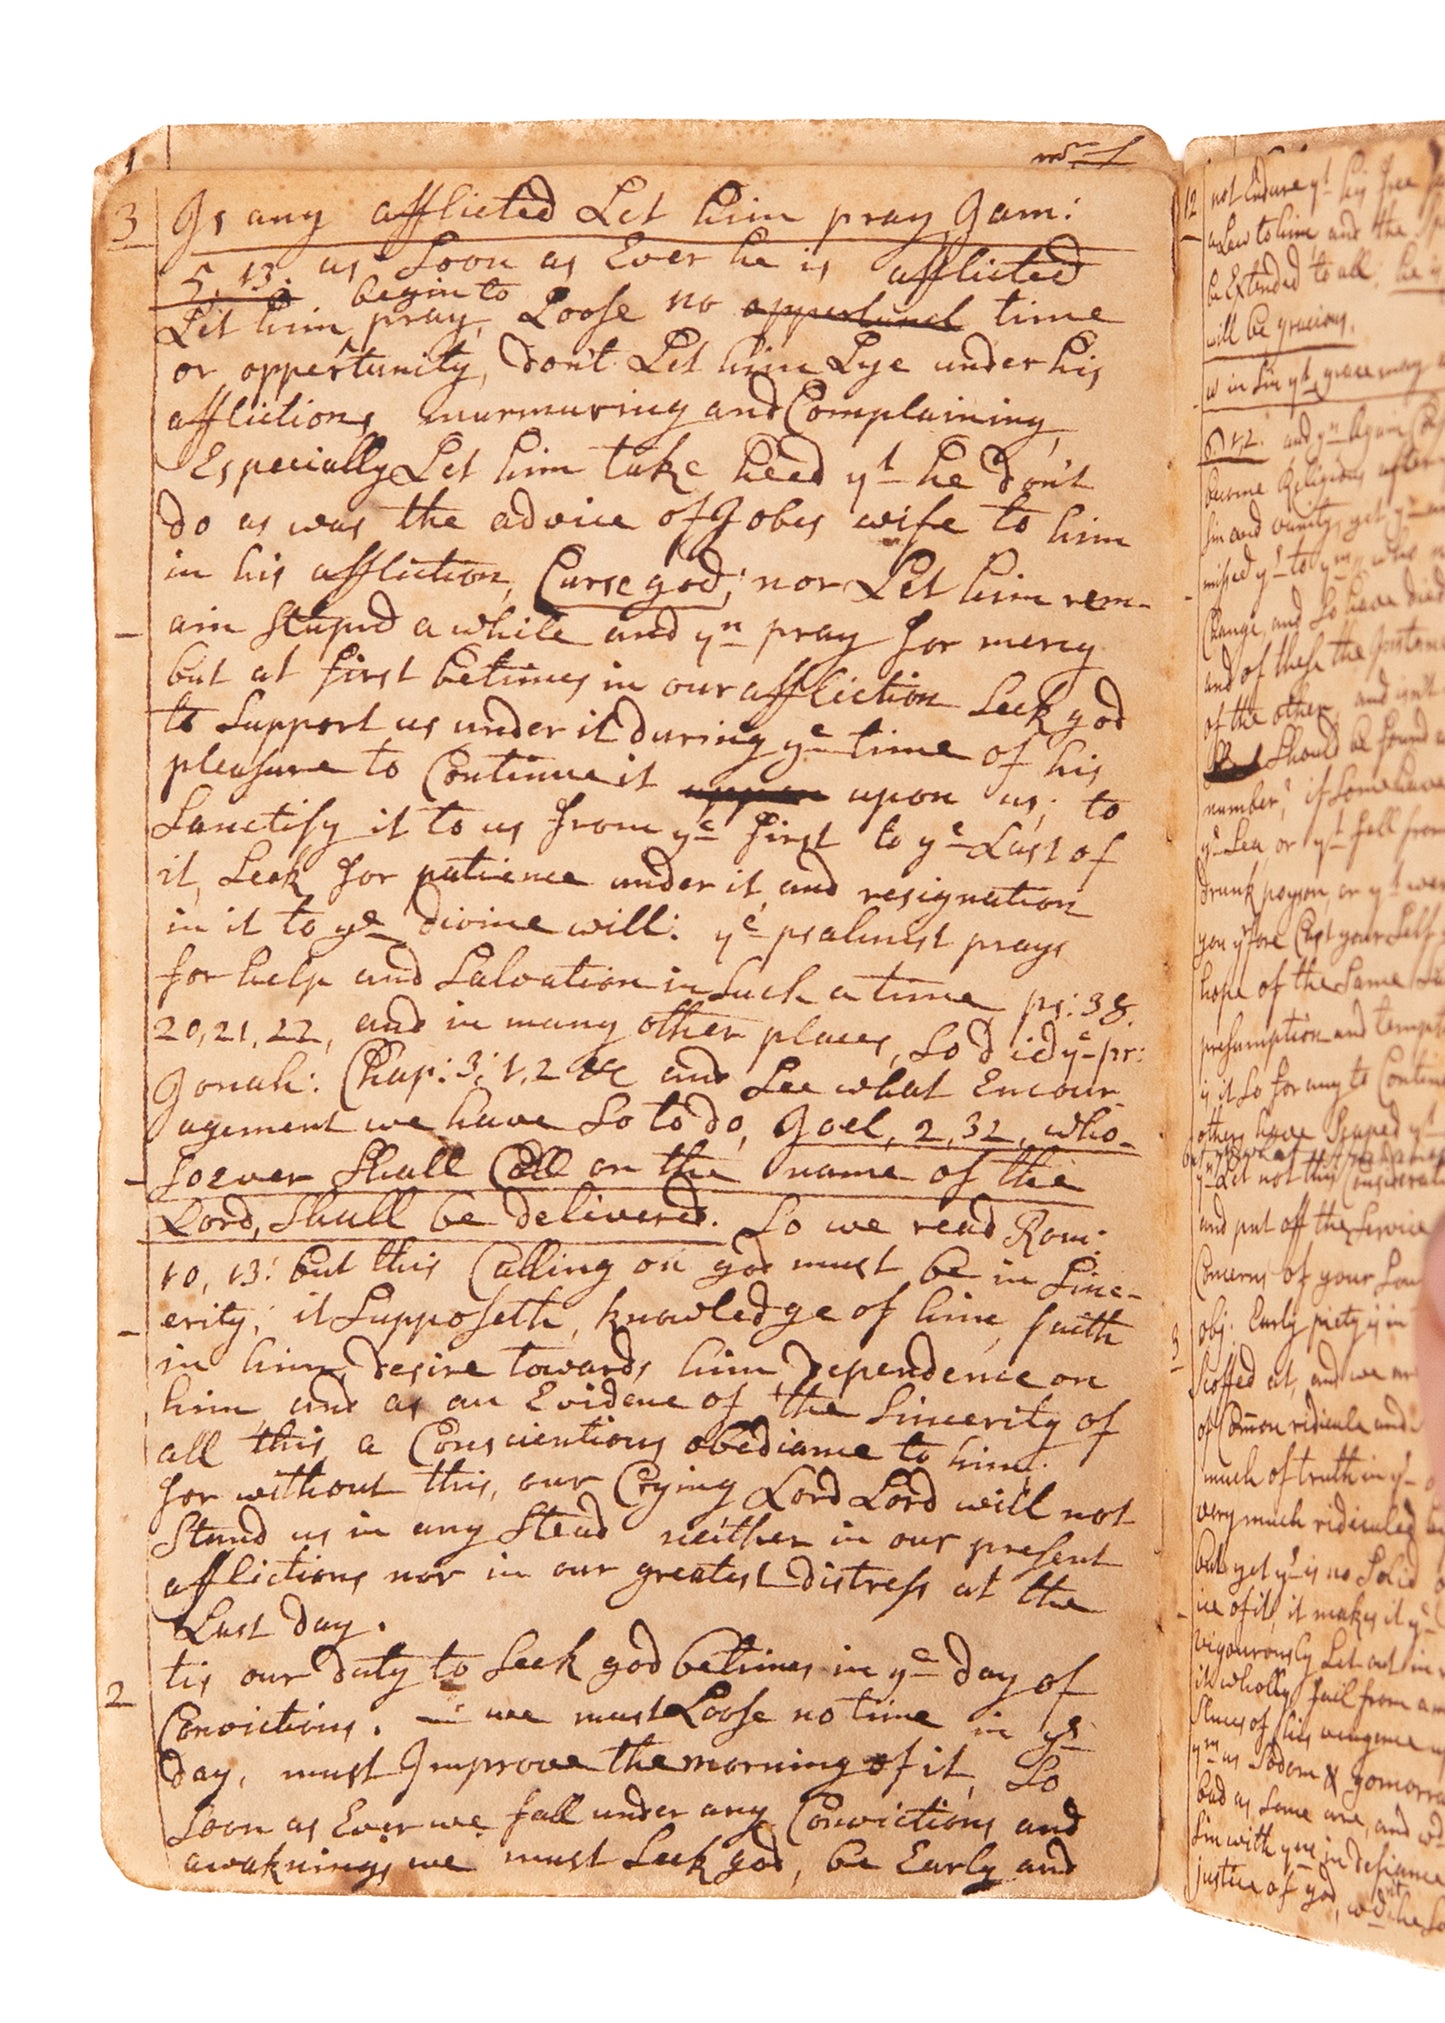 3 Is any afflicted Let him pray, Jam:
5, 13. as Soon as Ever he is afflicted
Let him begin to pray, Loose no opportunel time
or oppertunity, don't Let him Lye under his
afflictions murmuring and Complaining,
Especially Let him take heed yt he don't
do as was the advice of Jobes wife to him
in his affliction, Curse god; nor Let him rem-
ain Stupid a while and yn pray for mercy
but at first betimes in our affliction Seek god
to Support us under it during ye time of his
pleasure to Continue it uppon upon us; to
Sanctify it to us from ye first to ye Last of
it, Seek for patience under it, and resignation
in it to ye divine will: ye psalmist prays
for help and Salvation in Such a time ps: 38.
20, 21, 22, and in many other places, So did ye pr:
Jonah: Chap: 3; 1, 2 &c and See what Encour-
agement we have So to do, Joel, 2, 32, who-
soever Shall Call on the name of the
Lord, Shall be delivered. So we read Rom:
10, 13: but this Calling on god must be in Sinc-
erity; it Supposeth, knowledge of him, faith
in him, desire towards him, Dependence on
him, and as an Evidence of the Sincerity of
all this a Conscientious obediance to him:
for without this, our Crying Lord Lord will not
Stand us in any Stead neither in our present
afflictions nor in our greatest distress at the
Last day.
tis our duty to Seek god betimes in ye day of
2 Convictions. we must Loose no time in ys
day, must Improve the morning of it, So
Soon as Ever we fall under any Convictions and
awaknings we must Seek god, be Early and
12 not Endure yt his free
a Law to him and the
be Extended to all; he is
will be gracious.
in Sin yt grace may
6, 1, 2. and yn again
become Religious after
Sin and vanity, yet
missed yt to ym, who
Change, and So have died
and of these the
of the other, and isn't
Should be found
number? if Some have
ye Sea, or yt fell from
drunk poyson, or yt were
you yrfore Cast your Self
hope of the Same
presumption and
is it So for any to Continue
others have Scaped yt
yn Let not this Consideration
and put off the Service
Concerns of your
3 obj: Early piety is in
Scoffed at, and we are
of Common ridicule and
much of truth in yt
very much ridiculed
but yet yr is no Solid
ice of it, it makes it ye
vigourously Let out in
it wholly fail from
of his vengence
ym as Sodom & gomorra
bad as Some are, and
Sin with ym in defiance
justice of god,